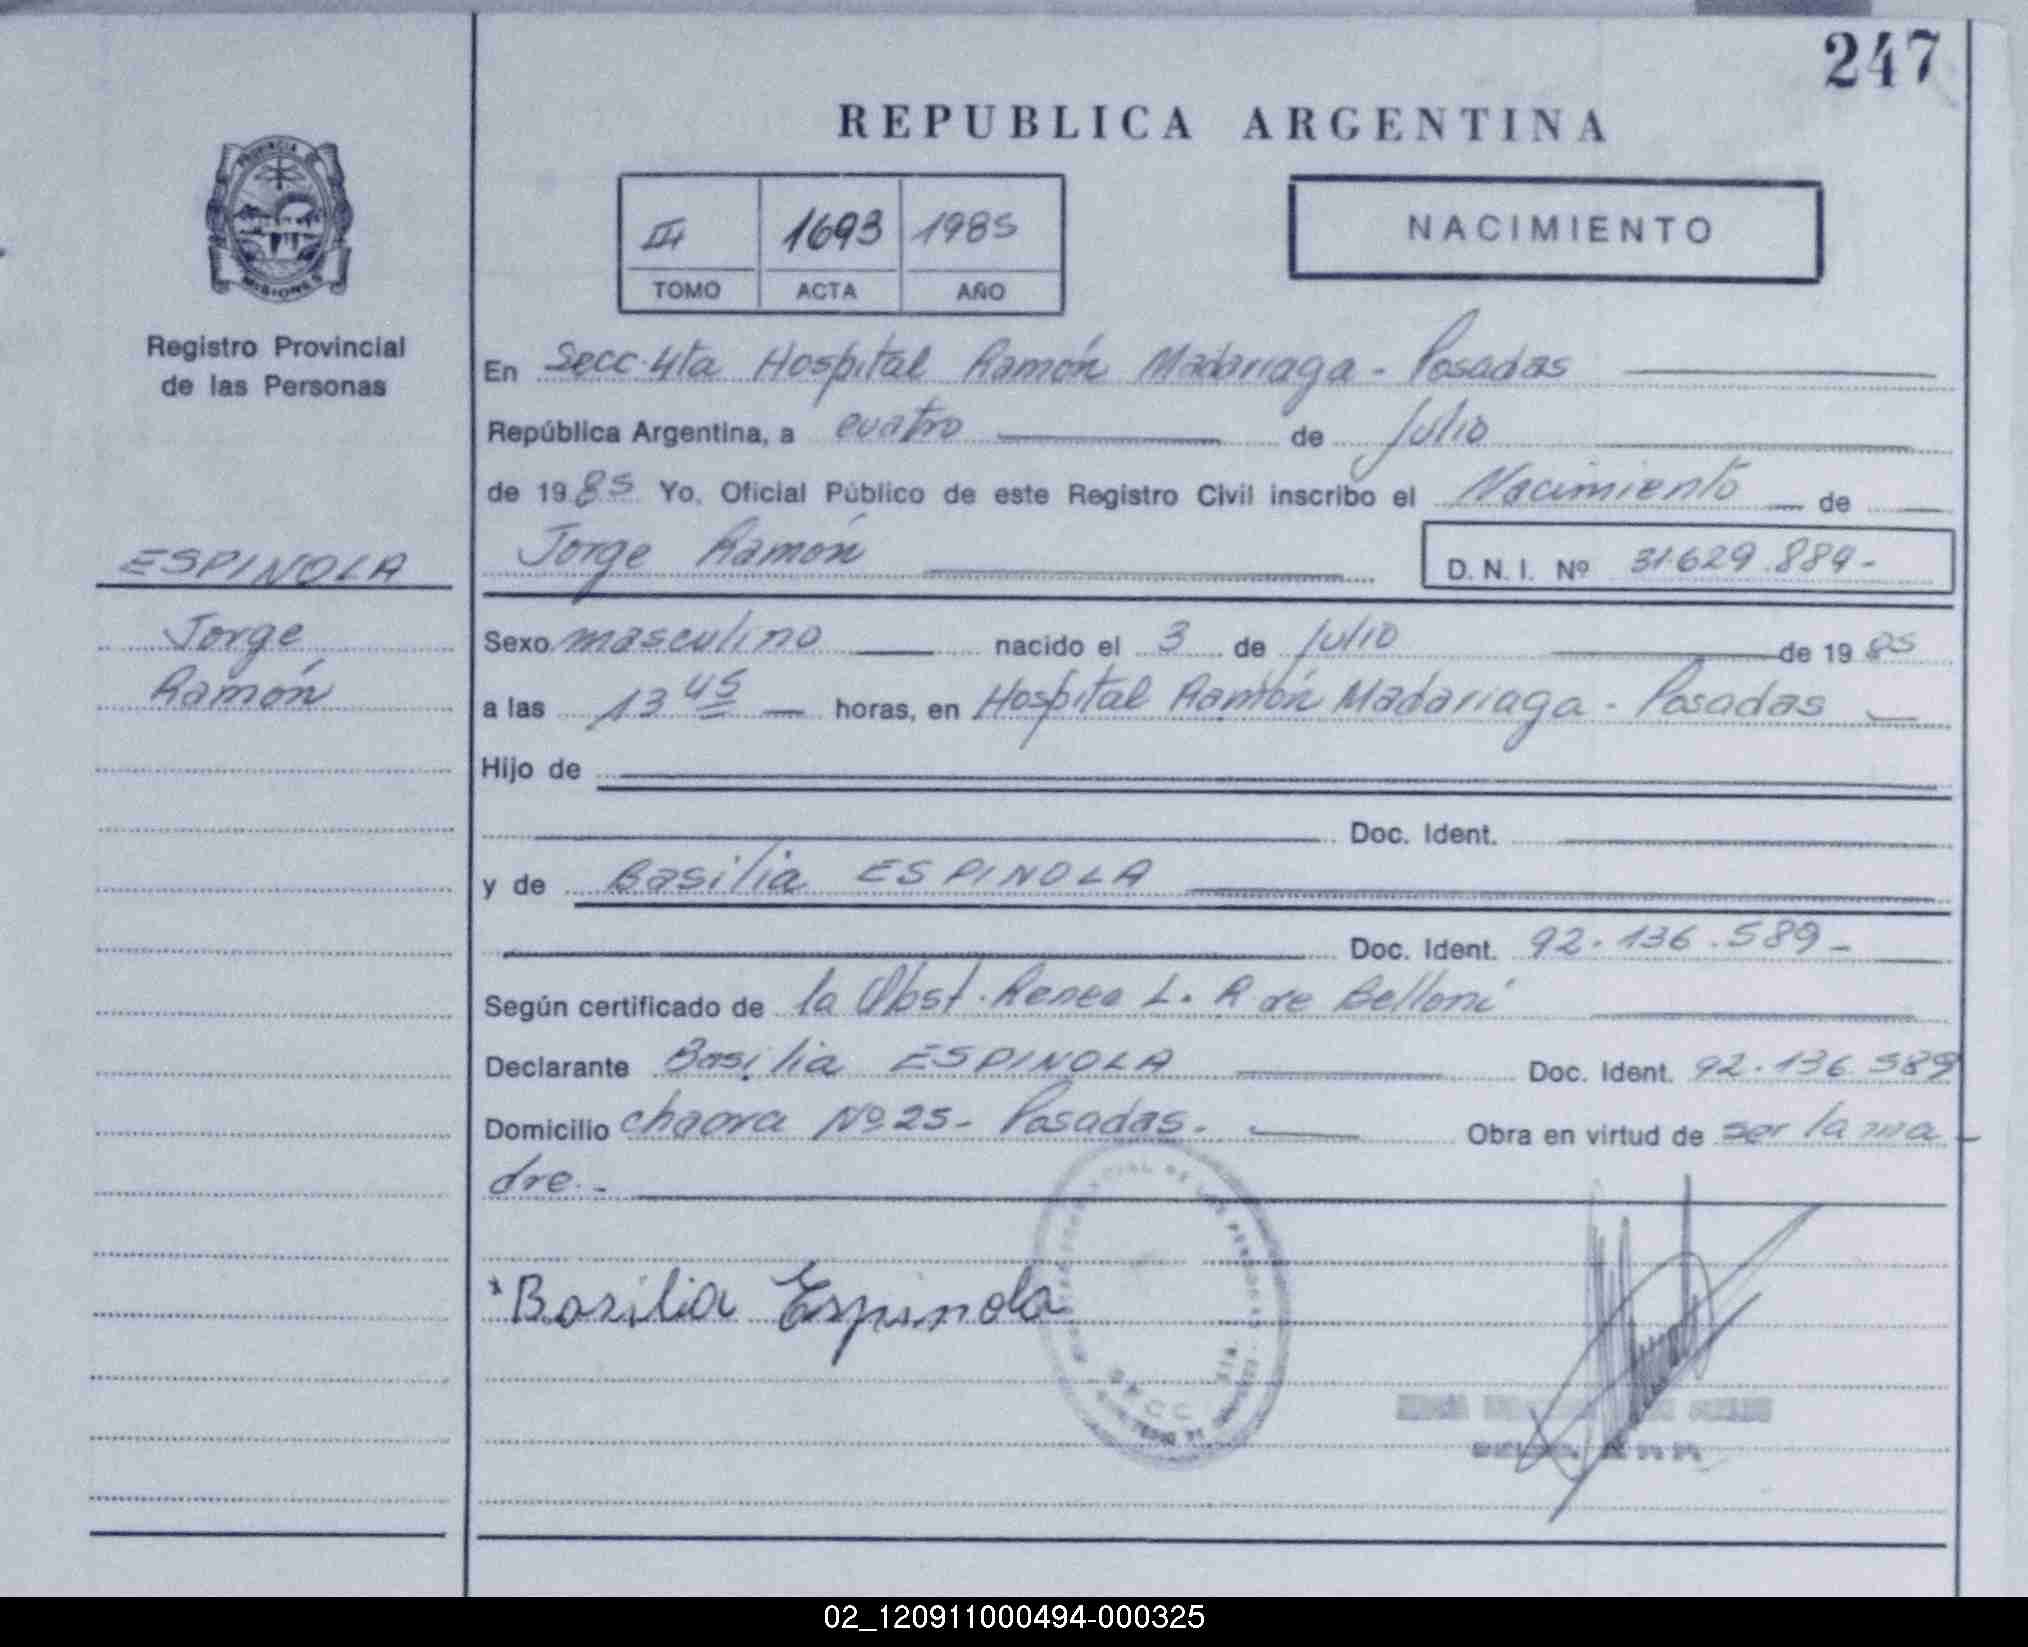 247
REPUBLICA ARGENTINA
PROVINCIA DE
MISIONES
Registro Provincial
de las Personas
III 1693 1985
TOMO ACTA AÑO
NACIMIENTO
En Secc. 4ta Hospital Ramón Madariaga - Posadas
República Argentina, a cuatro de julio
de 1985 Yo, Oficial Público de este Registro Civil inscribo el Nacimiento de
Jorge Ramón D. N. I. Nº 31.629.889-
ESPINOLA
Jorge
Ramón
Sexo masculino nacido el 3 de julio de 1985
a las 13 45 horas, en Hospital Ramón Madariaga - Posadas
Hijo de
Doc. Ident.
y de Basilia ESPINOLA
Doc. Ident. 92.136.589-
Según certificado de la Obst. Renee L. R de Belloni
Declarante Basilia ESPINOLA Doc. Ident. 92.136.589
Domicilio chacra Nº 25- Posadas. Obra en virtud de ser la ma-
dre.-
Basilia Espinola
02_120911000494-000325